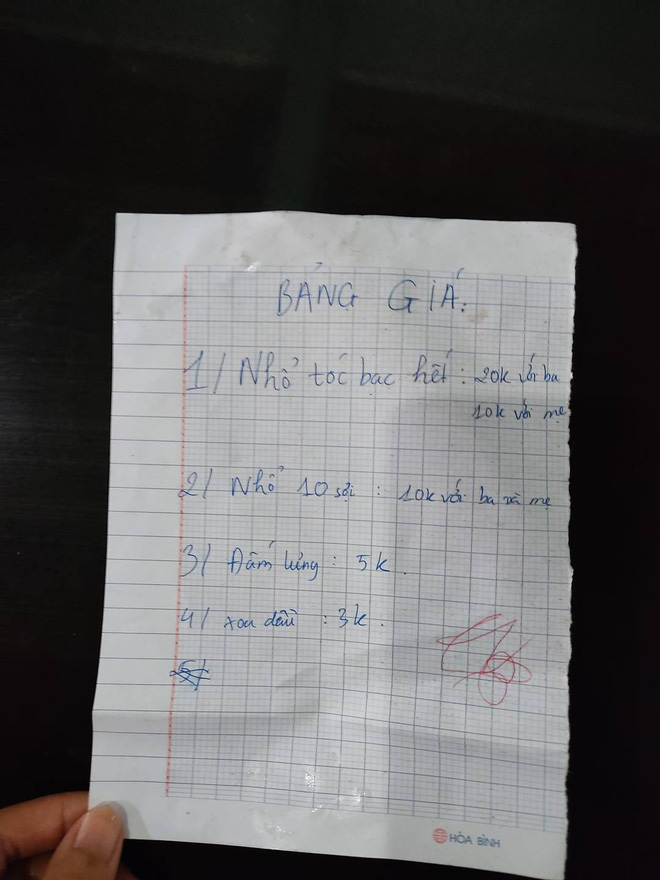 BẢNG GIÁ:
1/ Nhổ tóc bạc hết : 20k với ba
10k với mẹ
2/ Nhổ 10 sợi : 10k với ba và mẹ
3/ Đấm lưng : 5k.
4/ xoa dầu : 3k.
HÒA BÌNH